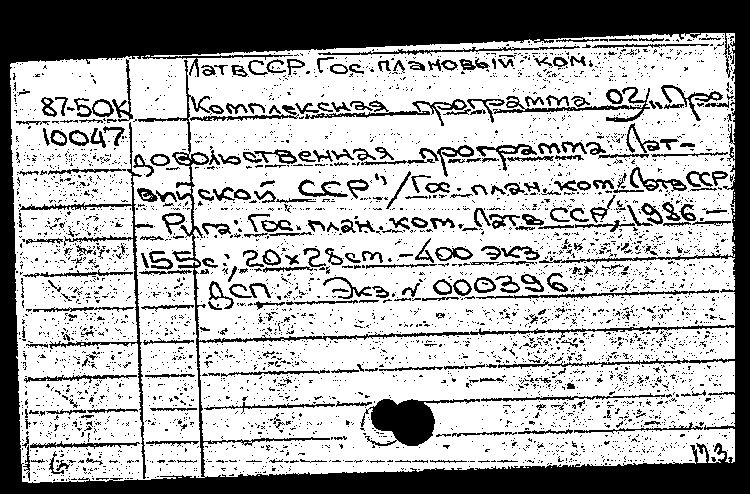 ЛатвССР. Гос. плановый ком.
87-5ОК Комплексная программа 02 „Про
10047 довольственная программа Лат-
вийской ССР"/Гос. план. ком. ЛатвССР.
– Рига: Гос. план. ком. Латв ССР, 1986. –
155с.; 20×28см. – 400 экз
ДСП. Экз. № 000396
т.з.